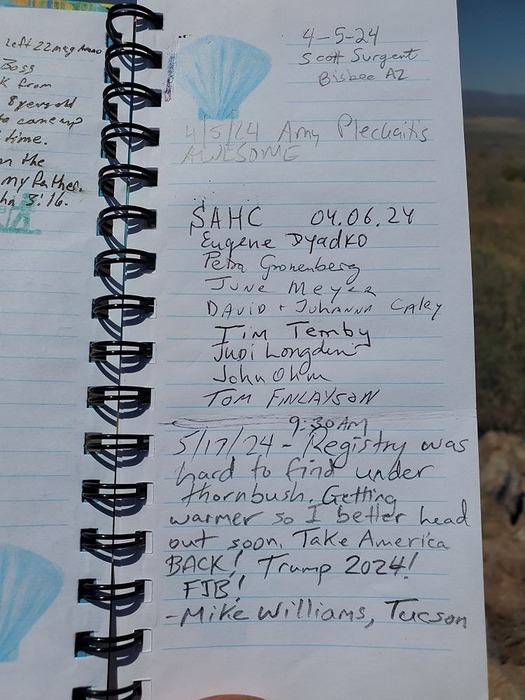 left 22 mag Ammo
Boss
k from
8 year old
to come up
time.
n the
my father.
hn 3:16.
4-5-24
Scott Surgent
Bisbee AZ
4/5/24 Amy Plechaitis
AWESOME
SAHC 04.06.24
Eugene Dyadko
Petra Gronenberg
June Meyer
David + Juhanna Caley
Tim Temby
Judi Longden
John Ohm
TOM FINLAYSON
9:30 AM
5/17/24 - Registry was
hard to find under
thornbush. Getting
warmer so I better head
out soon. Take America
BACK! Trump 2024!
FJB!
-Mike Williams, Tucson